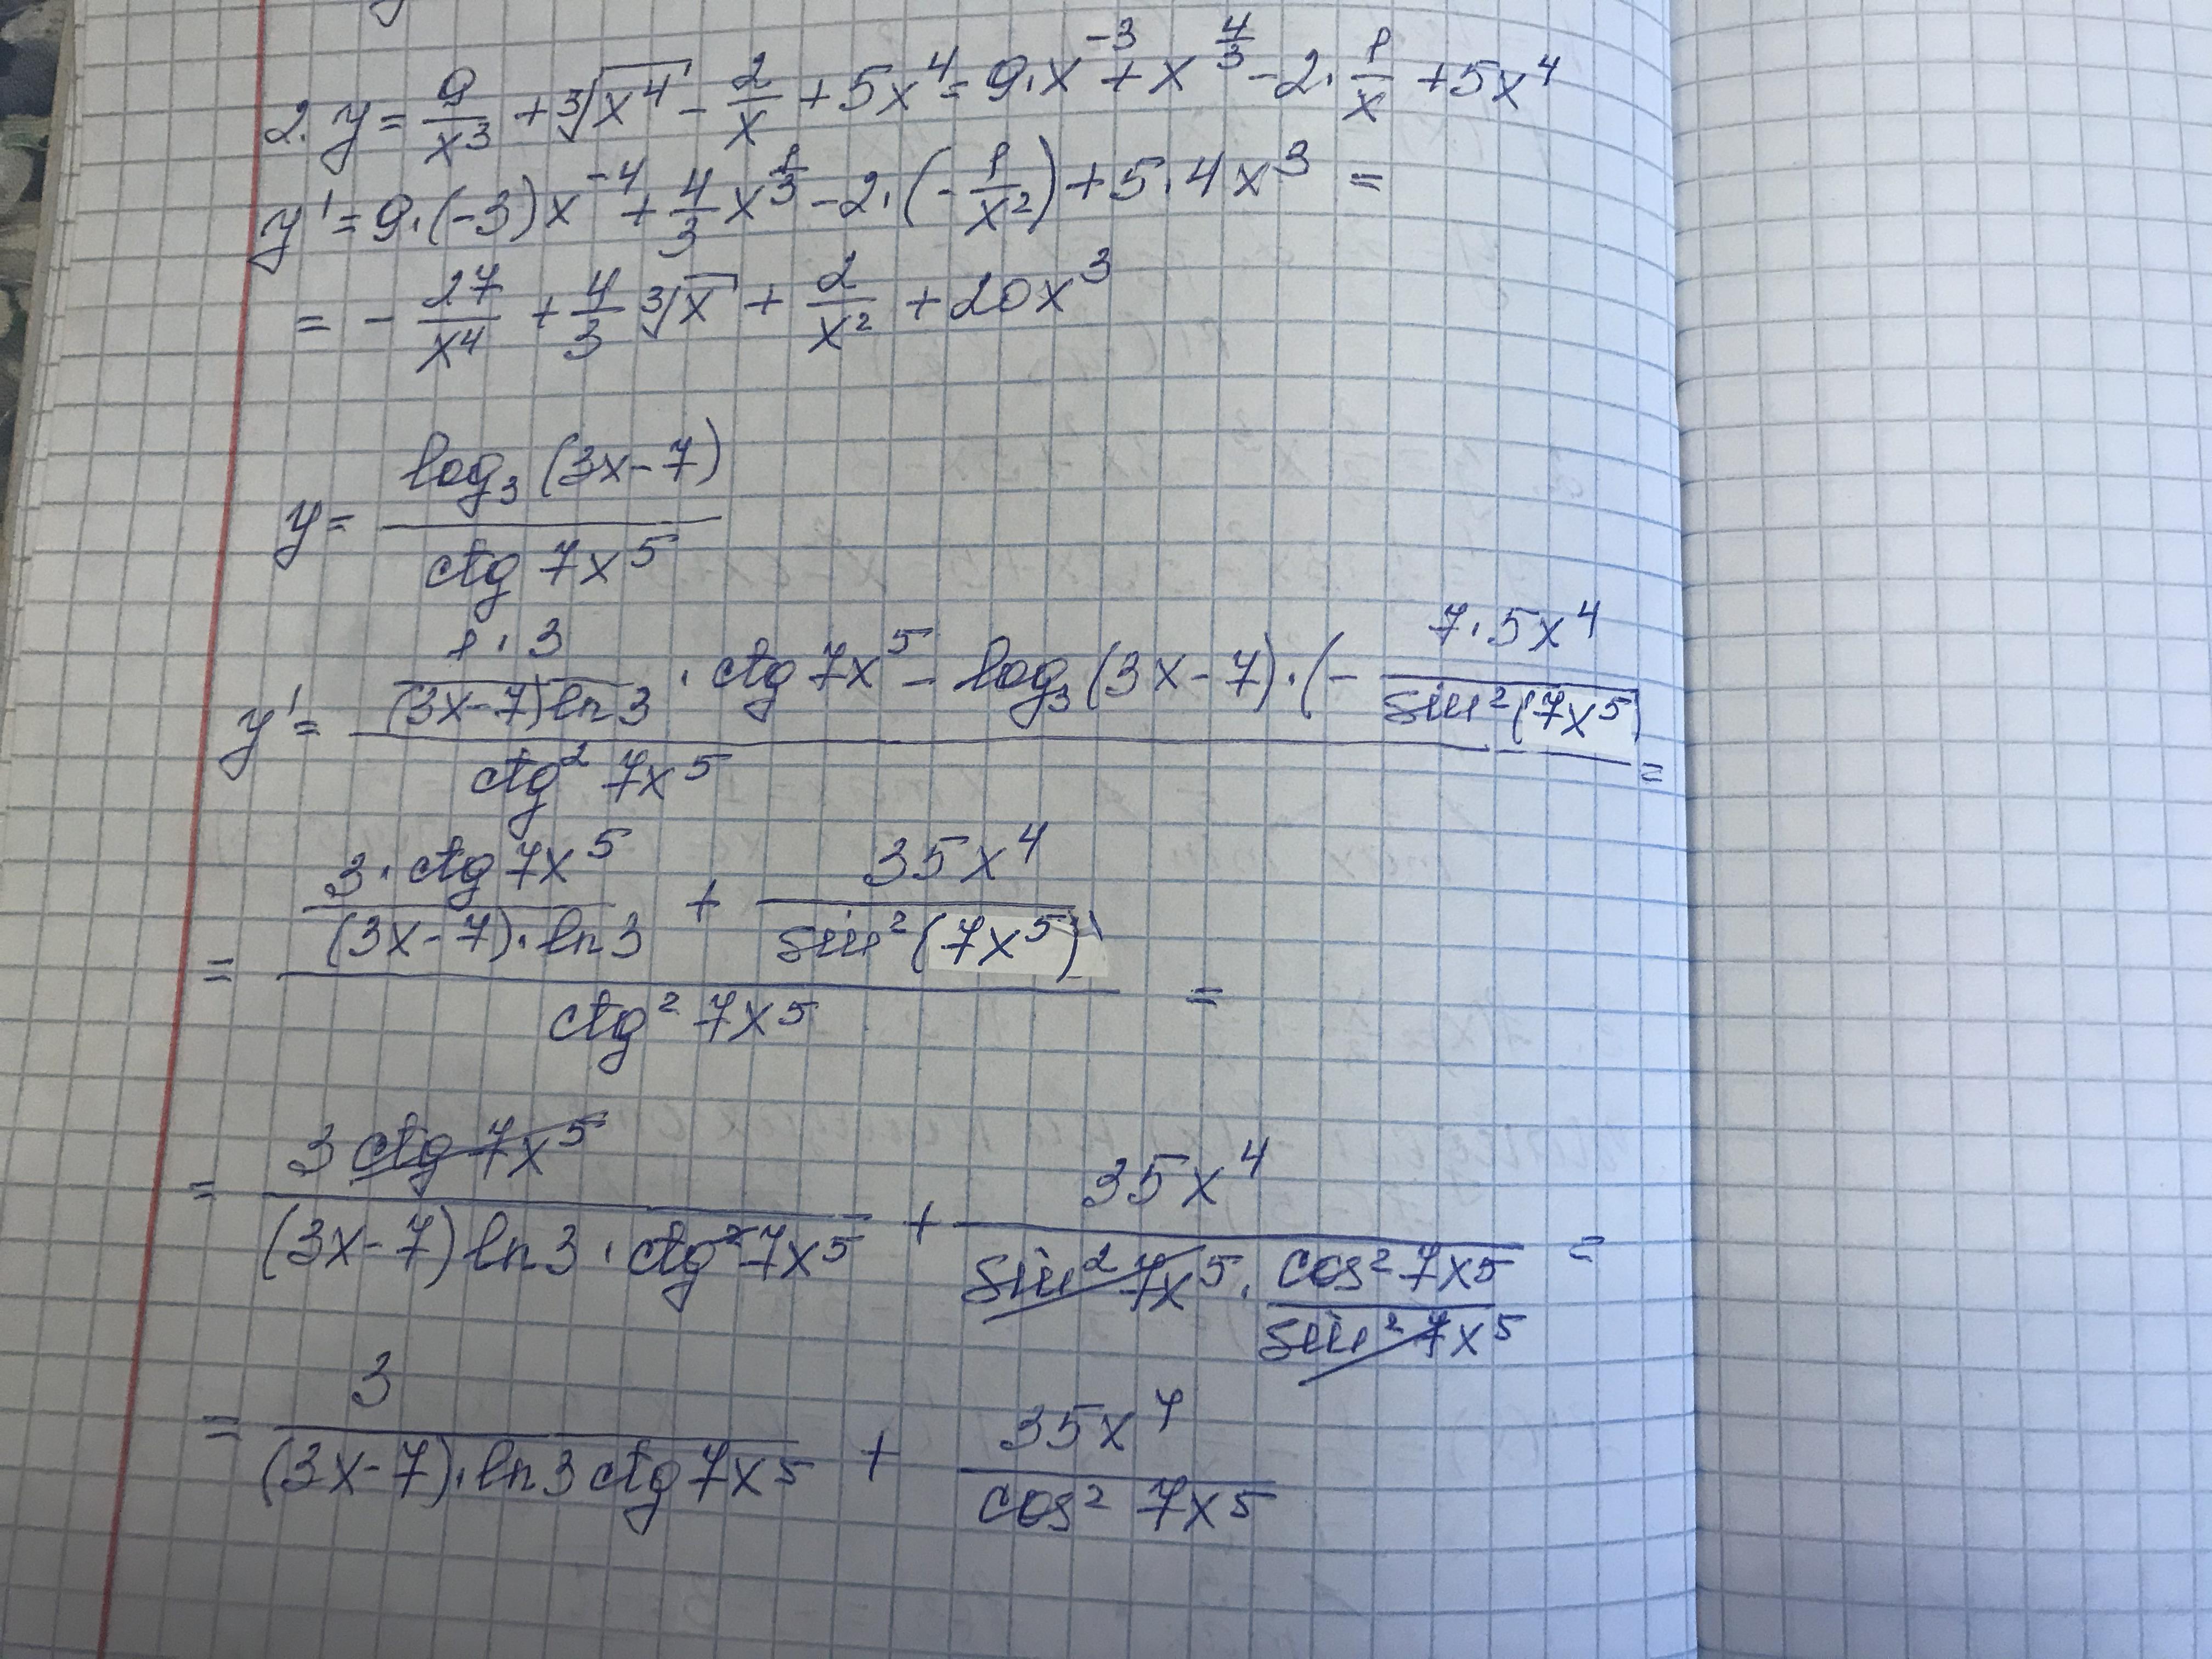 2. y = 9/x³ + ³√x⁴ - 2/x + 5x⁴ = 9·x⁻³ + x^(4/3) - 2·1/x + 5x⁴
y' = 9·(-3)x⁻⁴ + 4/3 x^(1/3) - 2·(-1/x²) + 5·4x³ =
= - 27/x⁴ + 4/3 ³√x + 2/x² + 20x³
y = log₃(3x-7) / ctg 7x⁵
y' = (1·3/((3x-7)ln3) · ctg 7x⁵ - log₃(3x-7)·(- 7·5x⁴/sin²(7x⁵)) / ctg² 7x⁵ =
= (3·ctg 7x⁵/((3x-7)·ln3) + 35x⁴/sin²(7x⁵)) / ctg² 7x⁵ =
= 3 ctg 7x⁵/((3x-7)ln3·ctg² 7x⁵) + 35x⁴/(sin² 7x⁵ · cos² 7x⁵/sin² 7x⁵) =
= 3/((3x-7)·ln3 ctg 7x⁵) + 35x⁴/cos² 7x⁵